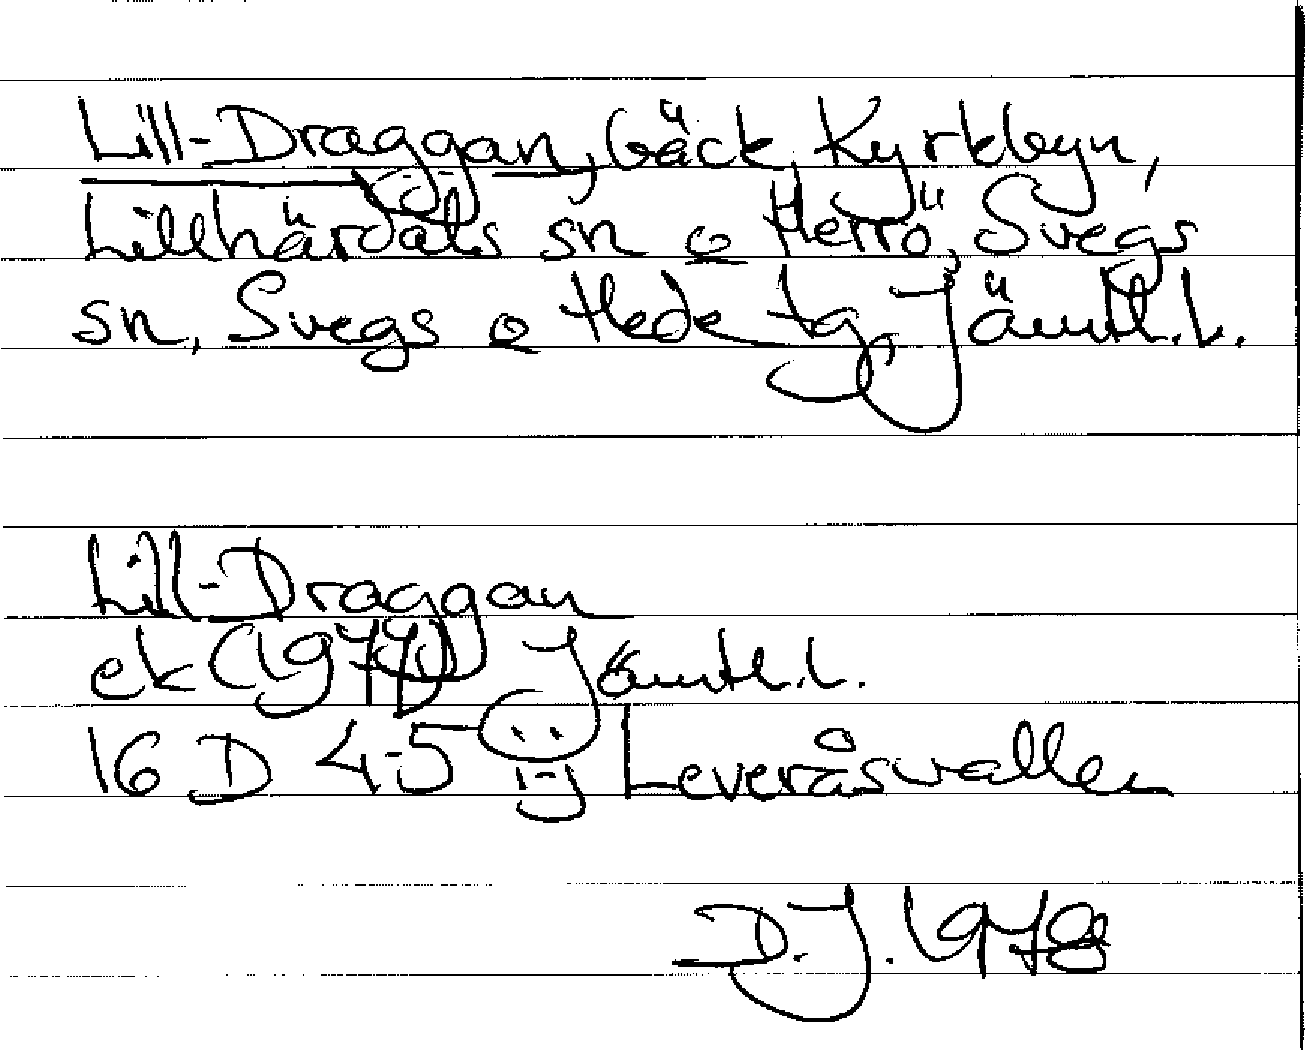 Lill-Draggan, bäck, Kyrkbyn,
Lillhärdals sn o Herrö, Svegs
sn, Svegs o Hede tg, Jämtl.l.
Lill-Draggan
ek (1977) Jämtl.l.
16 D 4-5 i-j Leveråsvallen
D.J. 1978